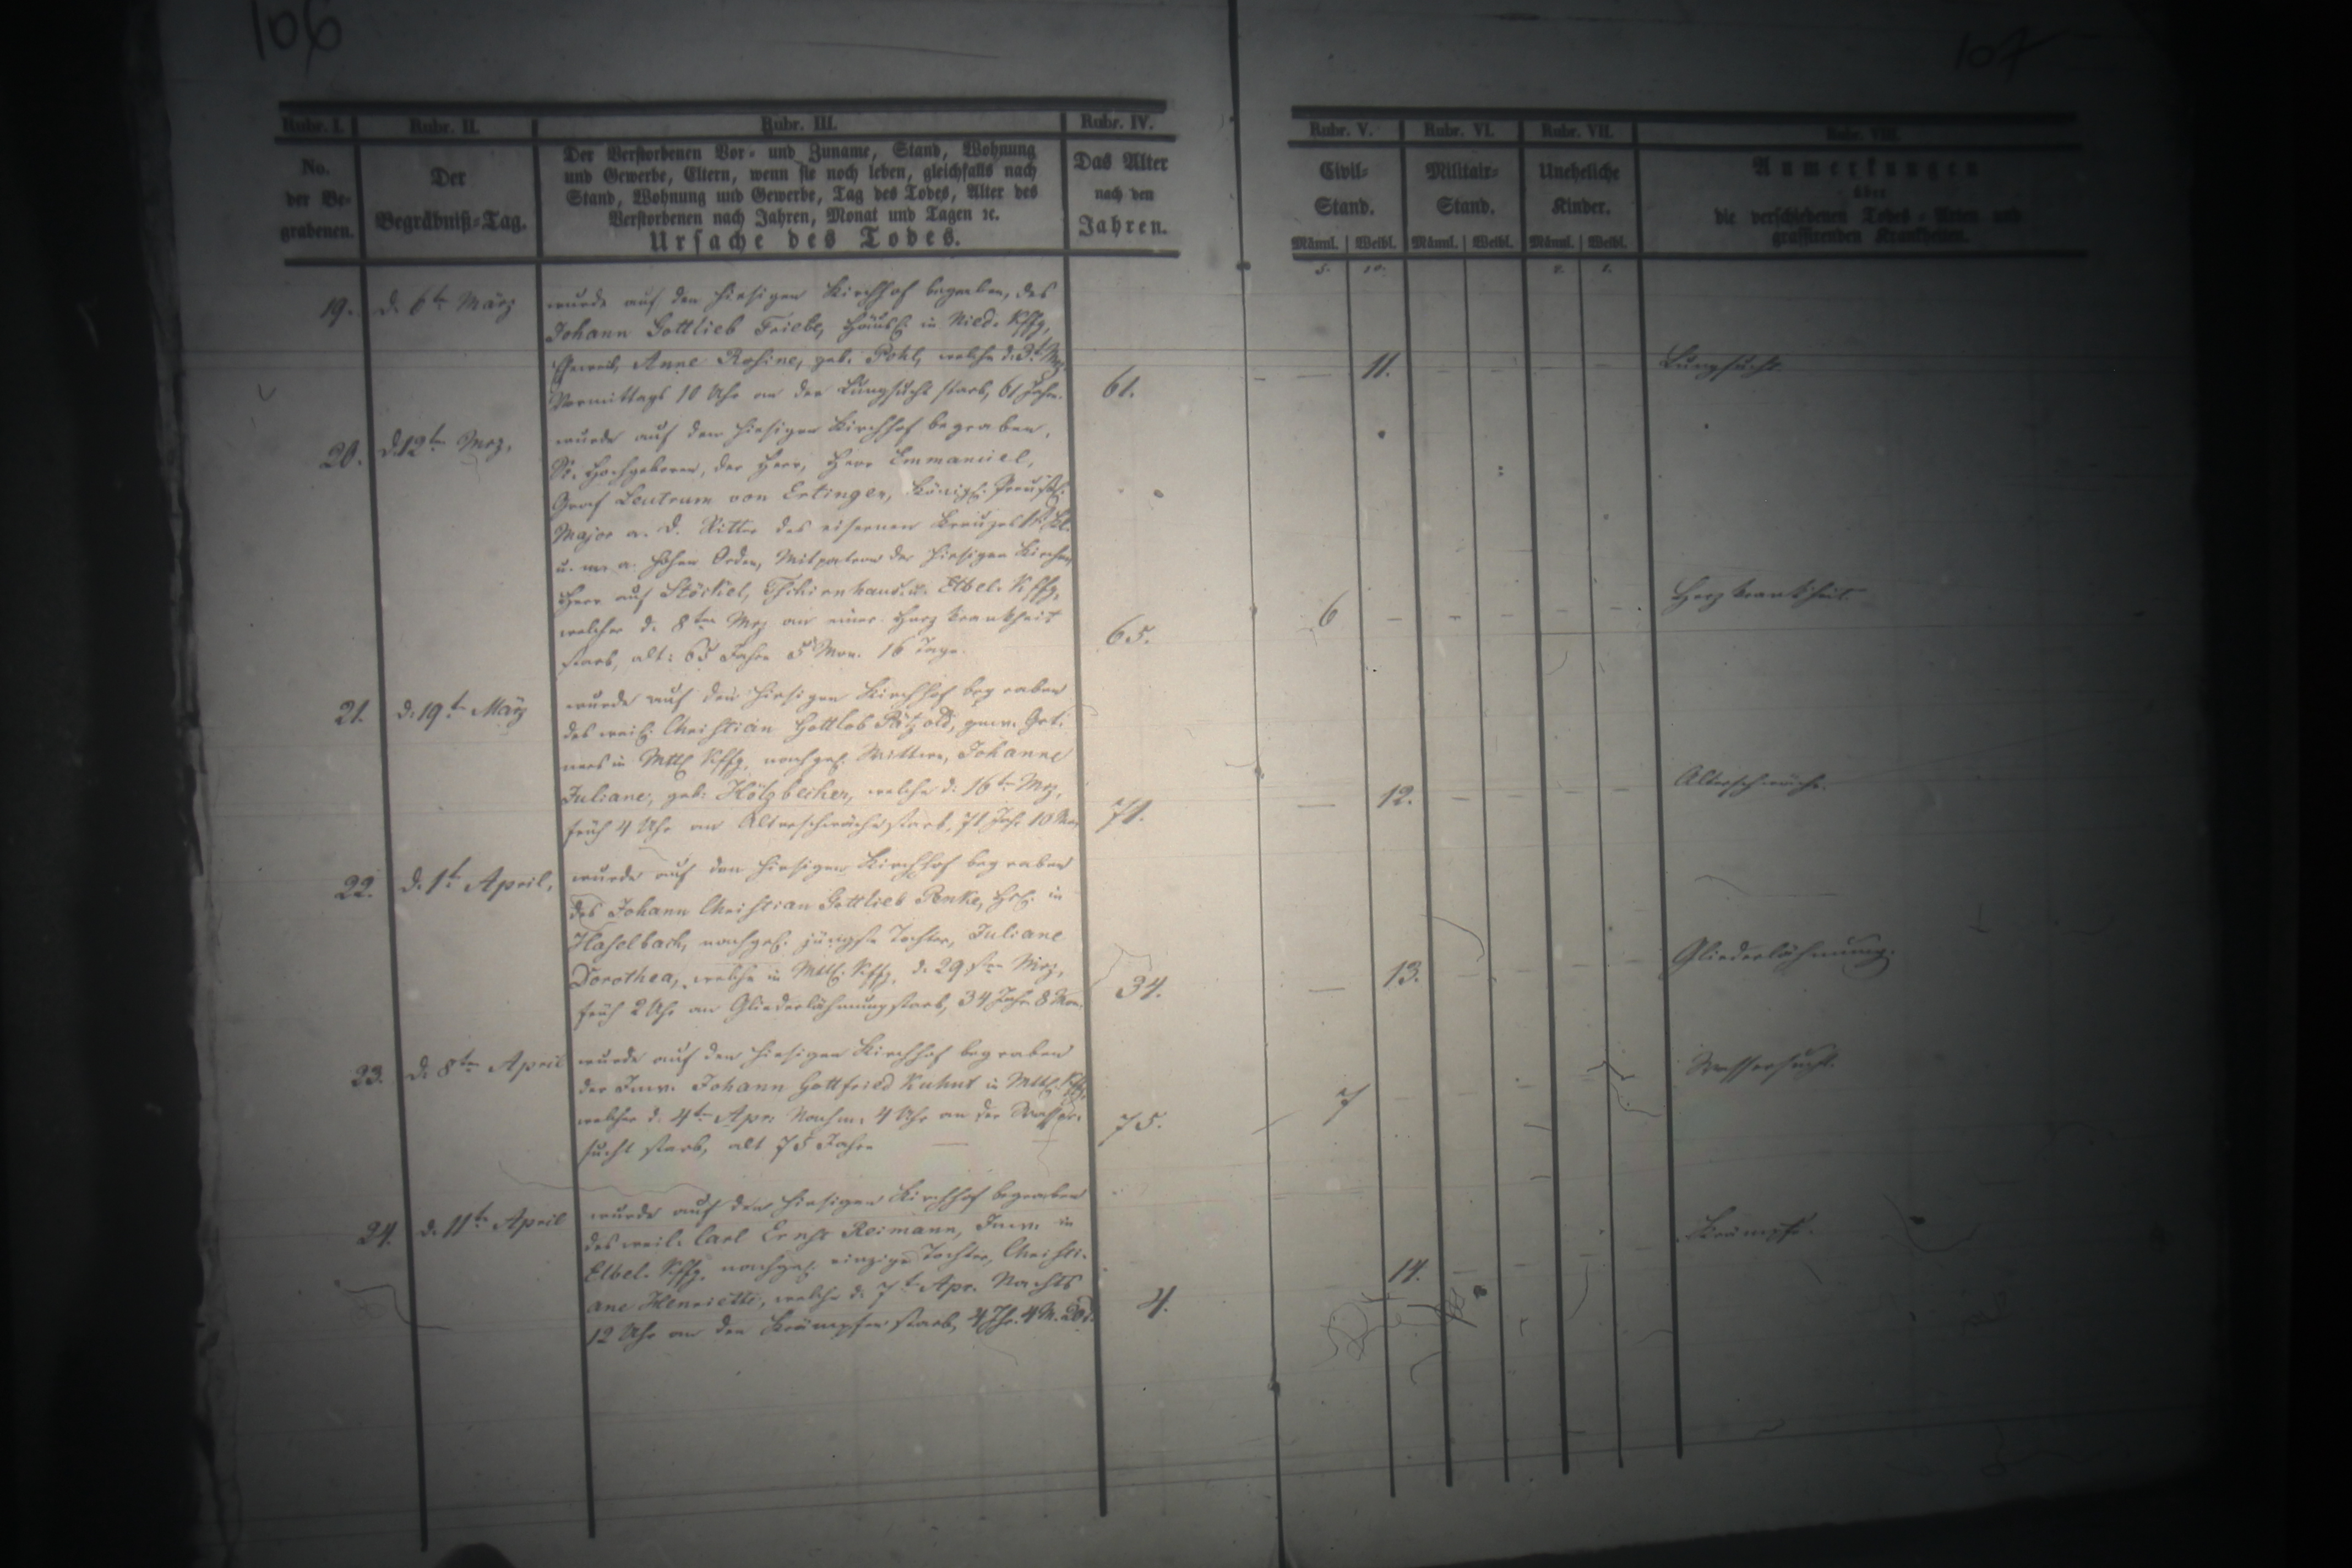 106
107
Rubr. I.
Rubr. II.
Rubr. III.
Rubr. IV.
Rubr. V.
Rubr. VI.
Rubr. VII.
Rubr. VIII.
No.
der Be-
grabenen.
Der
Begräbniß-Tag.
Der Verstorbenen Vor- und Zuname, Stand, Wohnung
und Gewerbe, Eltern, wenn sie noch leben, gleichfalls nach
Stand, Wohnung und Gewerbe, Tag des Todes, Alter des
Verstorbenen nach Jahren, Monat und Tagen ꝛc.
Ursache des Todes.
Das Alter
nach den
Jahren.
Civil-
Stand.
Männl. Weibl.
Militair-
Stand.
Männl. Weibl.
Uneheliche
Kinder.
Männl. Weibl.
Anmerkungen
über
die verschiedenen Todes-Arten und
grassirenden Krankheiten.
5. 10.
19. d. 6te März
wurde auf den hiesigen Kirchhof begraben, des
Johann Gottlieb Friebe, Häusl. in Nied. Kffg,
Eheweib, Anne Rosine, geb. Pohl, welche d. 3t. Mrz.
Vormittags 10 Uhr an der Lungsucht starb, 61 Jahr.
61.
11.
Lungsucht.
20. d. 12ten Mrz.
wurde auf dem hiesigen Kirchhof begraben,
Sr. Hochgeboren, der Herr, Herr Emmanuel,
Graf Leutrum von Ertingen, Königl. Preußl.
Major a. D. Ritter des eisernen Kreuzes 1t. Kl.
u. m. a. hohen Orden, Mitpatron der hiesigen Kirchen
Herr auf Stöckel, Tschirnhaus. u. Elbel. Kffg,
welcher d. 8ten Mrz an einer Herzkrankheit
starb, alt: 65 Jahre 5 Mon. 16 Tage.
65.
6
Herzkrankheit
21. d. 19te März
wurde auf den hiesigen Kirchhof begraben
des weil. Christian Gottlob Pätzold, gew. Grt-
ners in Mttl Kffg, nachgel. Wittwe, Johanne
Juliane, geb. Hölzbecher, welche d. 16ten Mrz,
früh 4 Uhr an Altersschwäche starb, 71 Jahr 10 Mon
71.
12.
Altersschwäche.
22. d. 1te April,
wurde auf den hiesigen Kirchhof begraben
des Johann Christian Gottlieb Renke, Hsl. in
Haselbach, nachgel. jüngste Tochter, Juliane
Dorothea, welche in Mttl. Kffg, d. 29sten Mrz,
früh 2 Uhr an Gliederlähmung starb, 34 Jahr 8 Mon.
34.
13.
Gliederlähmung.
23. d. 8ten April
wurde auf den hiesigen Kirchhof begraben
der Inw. Johann Gottfried Kuhnt in Mttl. Kffg,
welcher d. 4ten Apr. Nachm. 4 Uhr an der Wasser-
sucht starb, alt 75 Jahre
75.
7
Wassersucht.
24. d. 11te April
wurde auf den hiesigen Kirchhof begraben
des weil. Carl Ernst Reimann, Inw. in
Elbel. Kffg, nachgel. einzige Tochter, Christi-
ane Henriette, welche d. 7te Apr. Nachts
12 Uhr an den Krämpfen starb, 4 Jhr. 4 M.
4.
14.
Krämpfe.